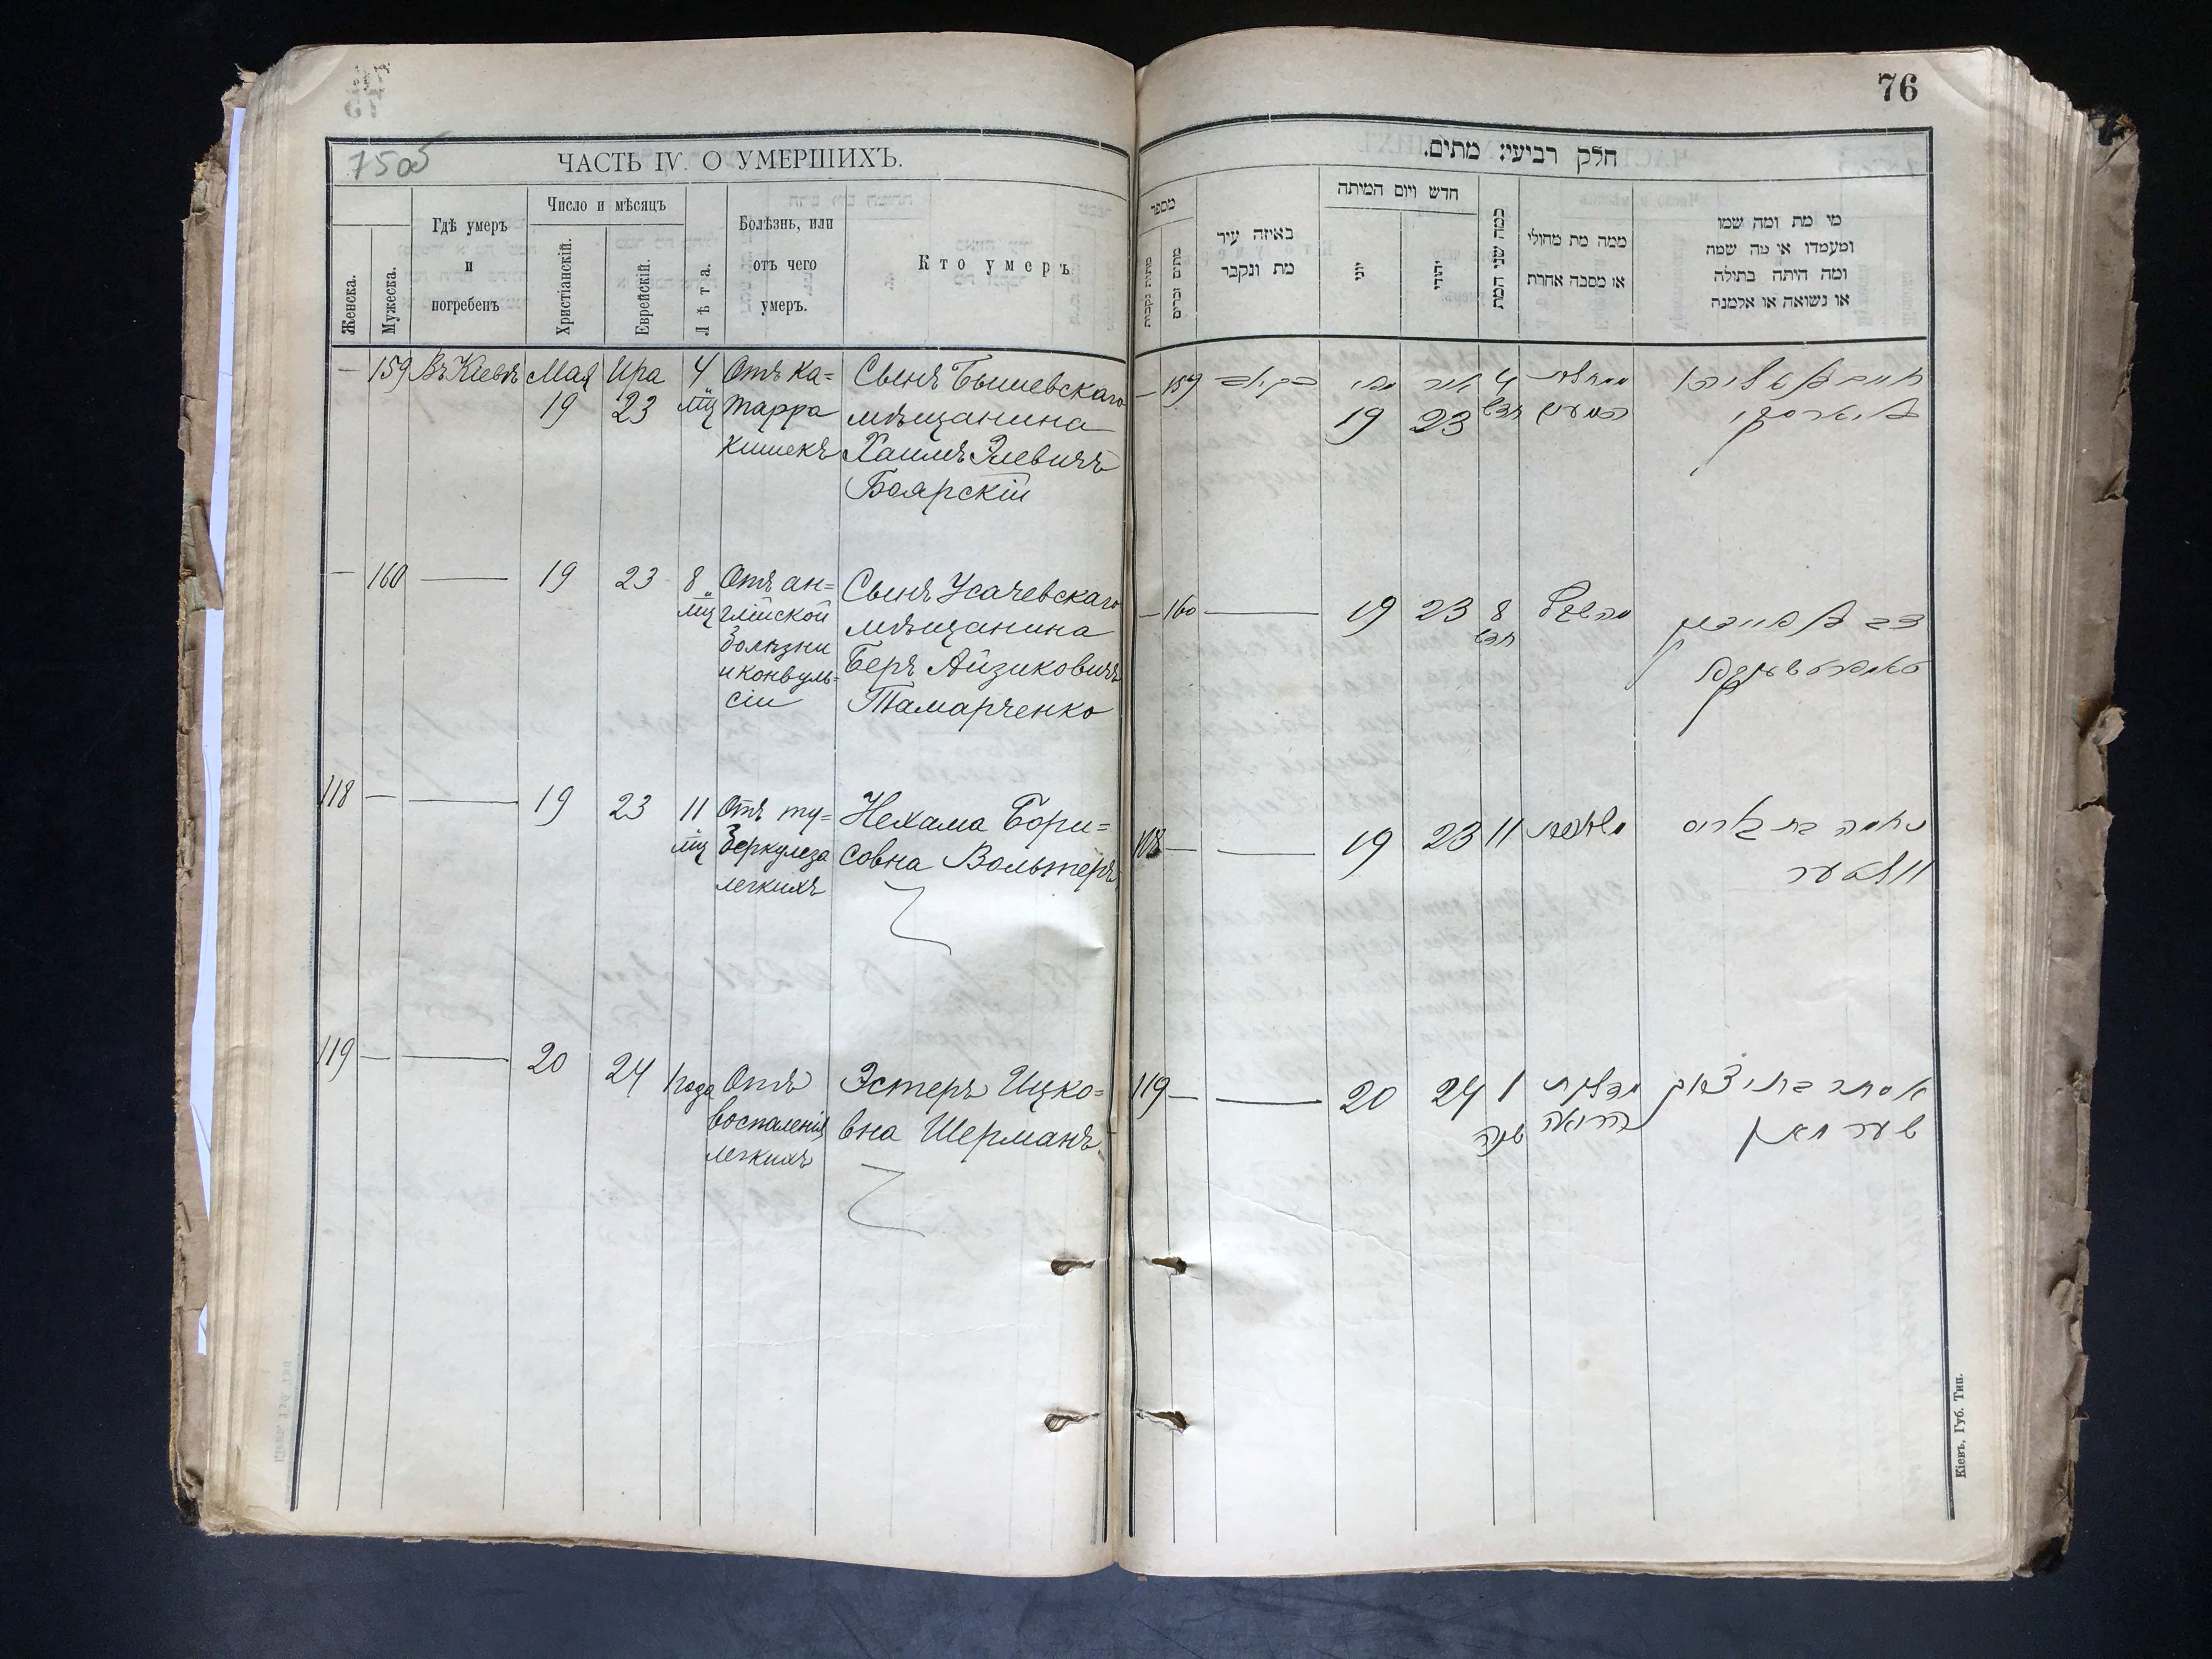 7505
ЧАСТЬ IV. О УМЕРШИХЪ.
Женска.
Мужеска.
Гдѣ умеръ
и
погребенъ
Число и мѣсяцъ
Христіанскій.
Еврейскій.
Лѣта.
Болѣзнь, или
отъ чего
умеръ.
Кто умеръ
— 159 Въ Кіевѣ Мая Ира 4 Отъ ка=
19 23 мц тарра
кишекъ
Сынъ Бышевскаго
мѣщанина
Хаимъ Элевичъ
Боярскій
— 160 — 19 23 8 Отъ ан=
мц глійской
болѣзни
и конвуль=
сіи
Сынъ Усачевскаго
мѣщанина
Беръ Айзиковичъ
Тамарченко
118 — — 19 23 11 Отъ ту=
мц беркулеза
легкихъ
Нехама Бори=
совна Вольтеръ
119 — — 20 24 1 года Отъ
воспаленія
легкихъ
Эстеръ Ицко=
вна Шерманъ
76
חלק רביעי: מתים.
מספר
מתות נקבות
מתים זכרים
באיזה עיר
מת ונקבר
חדש ויום המיתה
יוני
יהודי
כמה שני המת
ממה מת מחולי
או מסבה אחרת
מי מת ומה שמו
ומעמדו או מה שמה
ומה היתה בתולה
או נשואה או אלמנה
— 159 מאי אייר 4
19 23 חדש
חיים
באיארסקי
— 160 — 19 23 8
חדש
טאמארטשענקא
108 — — 19 23 11
נחמה בת
וואלטער
119 — — 20 24 1
שנה
מדלקת
הריאה
אסתר בת יצחק
שערמאן
Кіевъ, Губ. Тип.